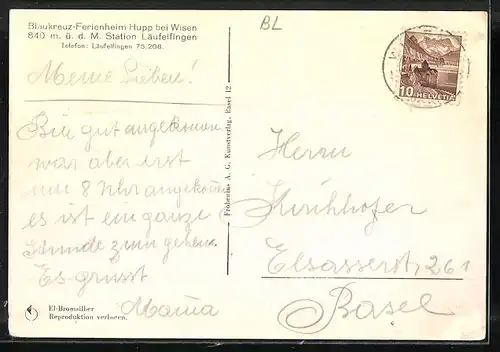 Blaukreuz-Ferienheim Hupp bei Wisen
840 m. ü. d. M. Station Läufelfingen
Telefon: Läufelfingen 75.206.
BL
10 HELVETIA
Meine Lieben!
Bin gut angekommen
war aber erst
um 8 Uhr angekommen
es ist ein ganze
Stunde zum gehen.
Es grüsst
Mama
Frobenius A. G. Kunstverlag, Basel 12
Herrn
Kirchhofer
Elsasserstr. 261
Basel
El-Bromsilber
Reproduktion verlagen.